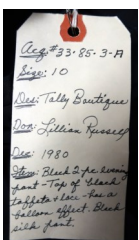 Acq# 33-85-3-A
Size: 10
Des: Tally Boutique
Don: Lillian Russell
Dec: 1980
Item: Black 2 pc evening
pant - Top of "black"
taffeta & lace - has a
balloon effect. Black
silk pant.